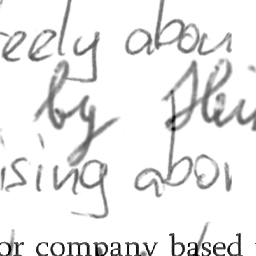 eely abou
by
ising abo
or company based